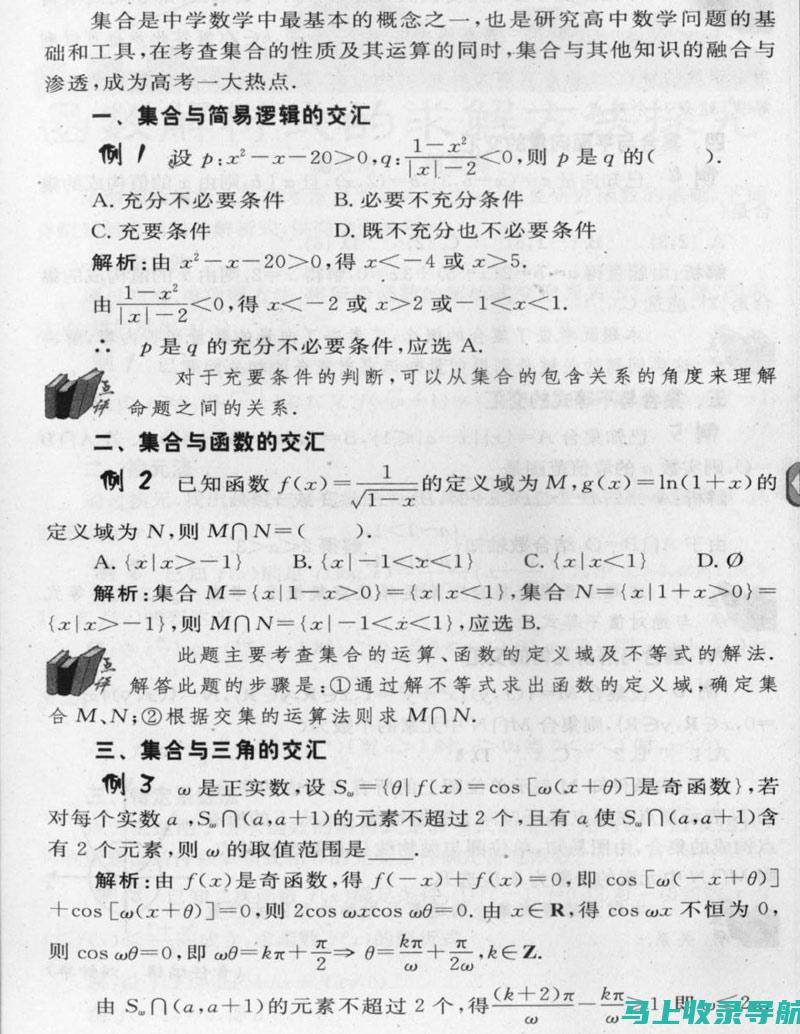 集合是中学数学中最基本的概念之一,也是研究高中数学问题的基
础和工具,在考查集合的性质及其运算的同时,集合与其他知识的融合与
渗透,成为高考一大热点.
一、集合与简易逻辑的交汇
例 1 设 p:x²-x-20>0,q:(1-x²)/(|x|-2)<0,则 p 是 q 的( ).
A. 充分不必要条件 B. 必要不充分条件
C. 充要条件 D. 既不充分也不必要条件
解析:由 x²-x-20>0,得 x<-4 或 x>5.
由(1-x²)/(|x|-2)<0,得 x<-2 或 x>2 或 -1<x<1.
∴ p 是 q 的充分不必要条件,应选 A.
点评 对于充要条件的判断,可以从集合的包含关系的角度来理解
命题之间的关系.
二、集合与函数的交汇
例 2 已知函数 f(x)=1/√(1-x)的定义域为 M,g(x)=ln(1+x)的
定义域为 N,则 M∩N=( ).
A. {x|x>-1} B. {x|-1<x<1} C. {x|x<1} D. Ø
解析:集合 M={x|1-x>0}={x|x<1},集合 N={x|1+x>0}=
{x|x>-1},则 M∩N={x|-1<x<1},应选 B.
点评 此题主要考查集合的运算、函数的定义域及不等式的解法.
解答此题的步骤是:①通过解不等式求出函数的定义域,确定集
合 M、N;②根据交集的运算法则求 M∩N.
三、集合与三角的交汇
例 3 ω 是正实数,设 S_ω={θ|f(x)=cos[ω(x+θ)]是奇函数},若
对每个实数 a,S_ω∩(a,a+1)的元素不超过 2 个,且有 a 使 S_ω∩(a,a+1)含
有 2 个元素,则 ω 的取值范围是____.
解析:由 f(x)是奇函数,得 f(-x)+f(x)=0,即 cos[ω(-x+θ)]
+cos[ω(x+θ)]=0,则 2cos ωxcos ωθ=0. 由 x∈R,得 cos ωx 不恒为 0,
则 cos ωθ=0,即 ωθ=kπ+π/2⇒ θ=kπ/ω+π/2ω,k∈Z.
由 S_ω∩(a,a+1)的元素不超过 2 个,得(k+2)π/ω-kπ/ω≥1,即 ω≤2π.
马上收录导航